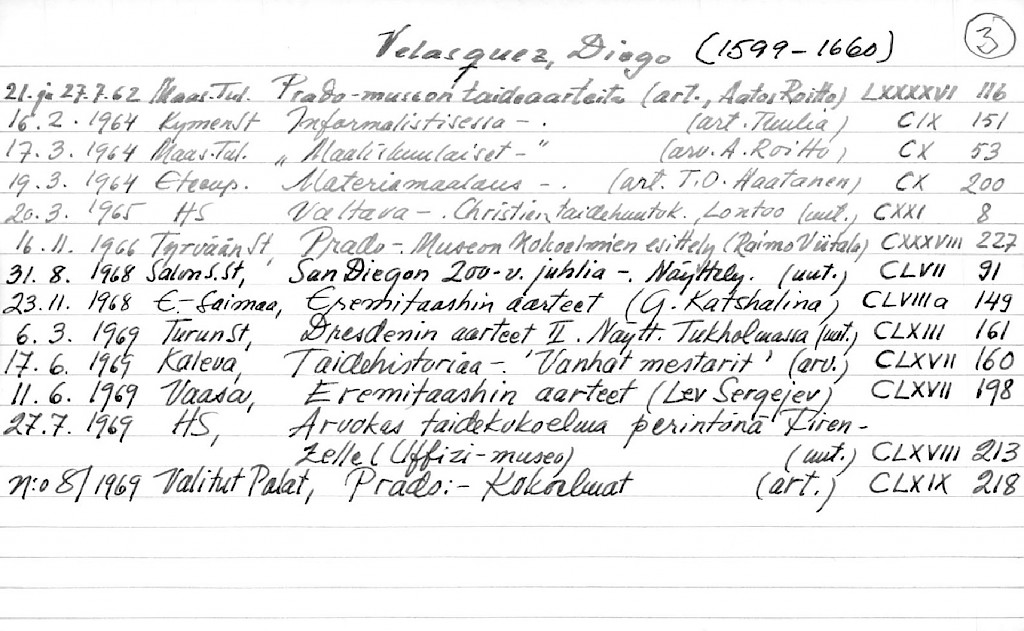 Velasquez, Diego (1599-1660) 3
21. ja 27.7.62 Maas.Tul. Prado-museon taideaarteita (art., Aatos Roitto) LXXXXVI 116
16.2. 1964 KymenSt Informalistisessa -. (art. Tuulia) CIX 151
17.3. 1964 Maas.Tul. "Maaliskuulaiset-" (arv. A. Roitto) CX 53
19.3. 1964 Eteenp. Materiamaalaus -. (art. T.O. Haatanen) CX 200
20.3. 1965 HS Valtava -. Christien taidehuutok., Lontoo (uut.) CXXI 8
16.11. 1966 TyrväänSt, Prado-. Museon kokoelmien esittely (Raimo Viitala) CXXXVIII 227
31.8. 1968 SalonS.St, San Diegon 200-v. juhlia -. Näyttely. (uut.) CLVII 91
23.11. 1968 E.-Saimaa, Eremitaashin aarteet (G. Katshalina) CLVIIIa 149
6.3. 1969 TurunSt, Dresdenin aarteet II. Näytt. Tukholmassa (uut.) CLXIII 161
17.6. 1969 Kaleva, Taidehistoriaa-. 'Vanhat mestarit' (arv.) CLXVII 160
11.6. 1969 Vaasa, Eremitaashin aarteet (Lev Sergejev) CLXVII 198
27.7. 1969 HS, Arvokas taidekokoelma perintönä Firen-
zelle (Uffizi-museo) (uut.) CLXVIII 213
n:o 8/1969 Valitut Palat, Prado:- Kokoelmat (art.) CLXIX 218